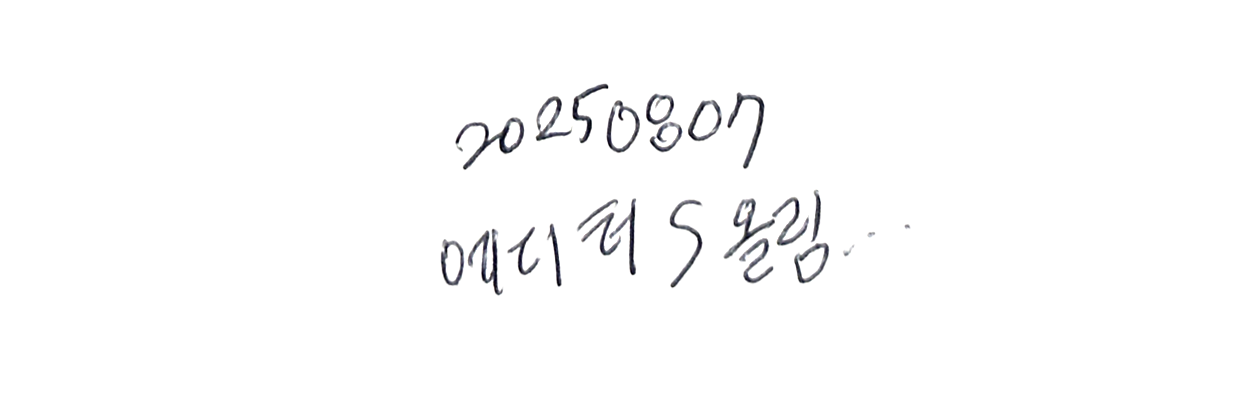 20250807
에디터 S 올림...